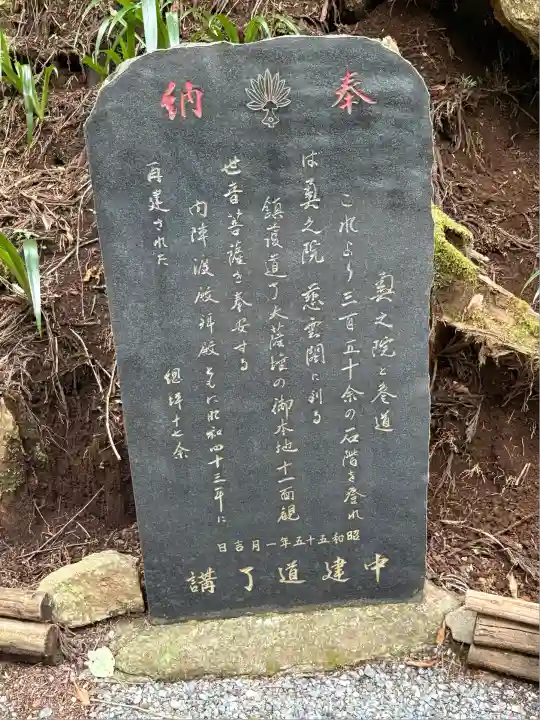 奉納
奥之院と参道
これより三百五十余の石階を登れ
ば奥之院 慈雲閣に到る
鎮護道了大薩埵の御本地十一面観
世音菩薩を奉安する
内陣渡殿拝殿ともに昭和四十三年に
再建された
総坪十七余
昭和五十五年一月吉日
中建道了講